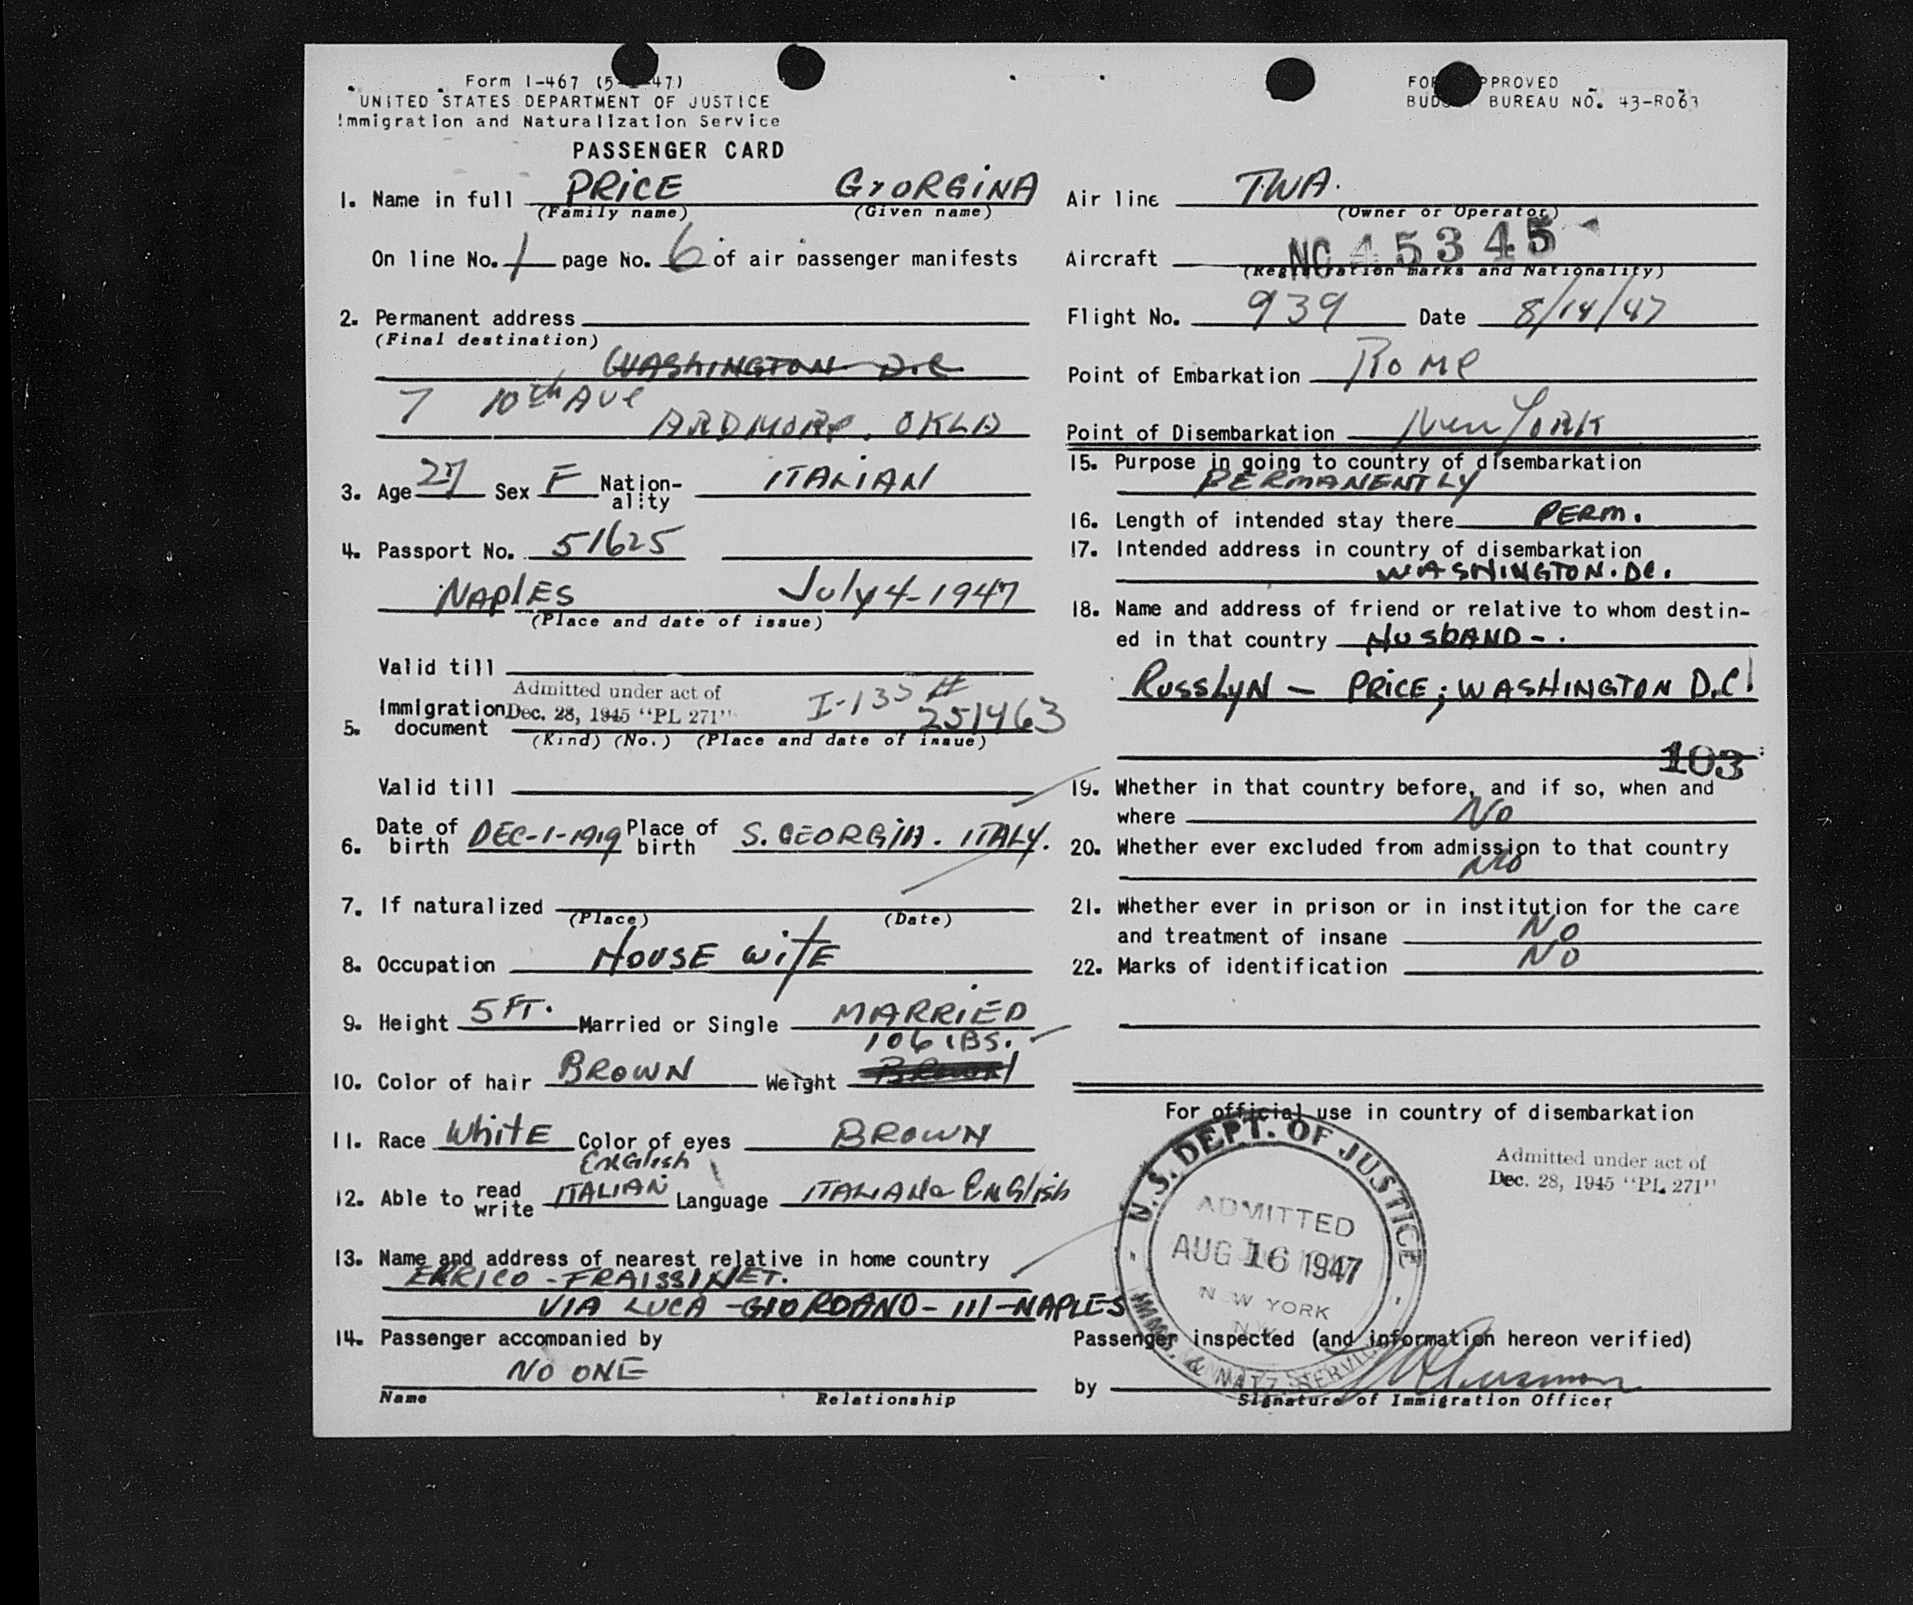 Form I-467 (5- -47)
UNITED STATES DEPARTMENT OF JUSTICE
Immigration and Naturalization Service
PASSENGER CARD
1. Name in full PRICE GEORGINA
(Family name) (Given name)
On line No. 1 page No. 6 of air passenger manifests
2. Permanent address
(Final destination)
WASHINGTON D.C
7 10th AVE
ARDMORE. OKLA
3. Age 27 Sex F Nation-ality ITALIAN
4. Passport No. 51625
NAPLES July 4-1947
(Place and date of issue)
Valid till
Admitted under act of
Dec. 28, 1945 "PL 271"
I-133 #
251463
5. Immigration document
(Kind) (No.) (Place and date of issue)
Valid till
6. Date of birth DEC-1-1919 Place of birth S. GEORGIA. ITALY.
7. If naturalized
(Place) (Date)
8. Occupation HOUSE WIFE
9. Height 5 FT. Married or Single MARRIED
106 LBS.
10. Color of hair BROWN Weight BROWN
11. Race White Color of eyes BROWN
ENGLISH
12. Able to read write ITALIAN Language ITALIAN & ENGLISH
13. Name and address of nearest relative in home country
ENRICO - FRAISSINET.
VIA LUCA - GIORDANO - 111 - NAPLES
14. Passenger accompanied by
NO ONE
Name Relationship
FO PPROVED
BUD BUREAU NO. 43-R063
Air line TWA.
(Owner or Operator)
Aircraft NC 45345
(Registration marks and Nationality)
Flight No. 939 Date 8/14/47
Point of Embarkation Rome
Point of Disembarkation New York
15. Purpose in going to country of disembarkation
PERMANENTLY
16. Length of intended stay there PERM.
17. Intended address in country of disembarkation
WASHINGTON. DC.
18. Name and address of friend or relative to whom destin-
ed in that country HUSBAND -
RUSSLYN - PRICE; WASHINGTON D.C.
103
19. Whether in that country before, and if so, when and
where No
20. Whether ever excluded from admission to that country
No
21. Whether ever in prison or in institution for the care
and treatment of insane No
22. Marks of identification No
For official use in country of disembarkation
Admitted under act of
Dec. 28, 1945 "PL 271"
U.S. DEPT. OF JUSTICE
ADMITTED
AUG 16 1947
NEW YORK
N.Y.
IMM. & NATZ SERVICE
Passenger inspected (and information hereon verified)
by
Signature of Immigration Officer